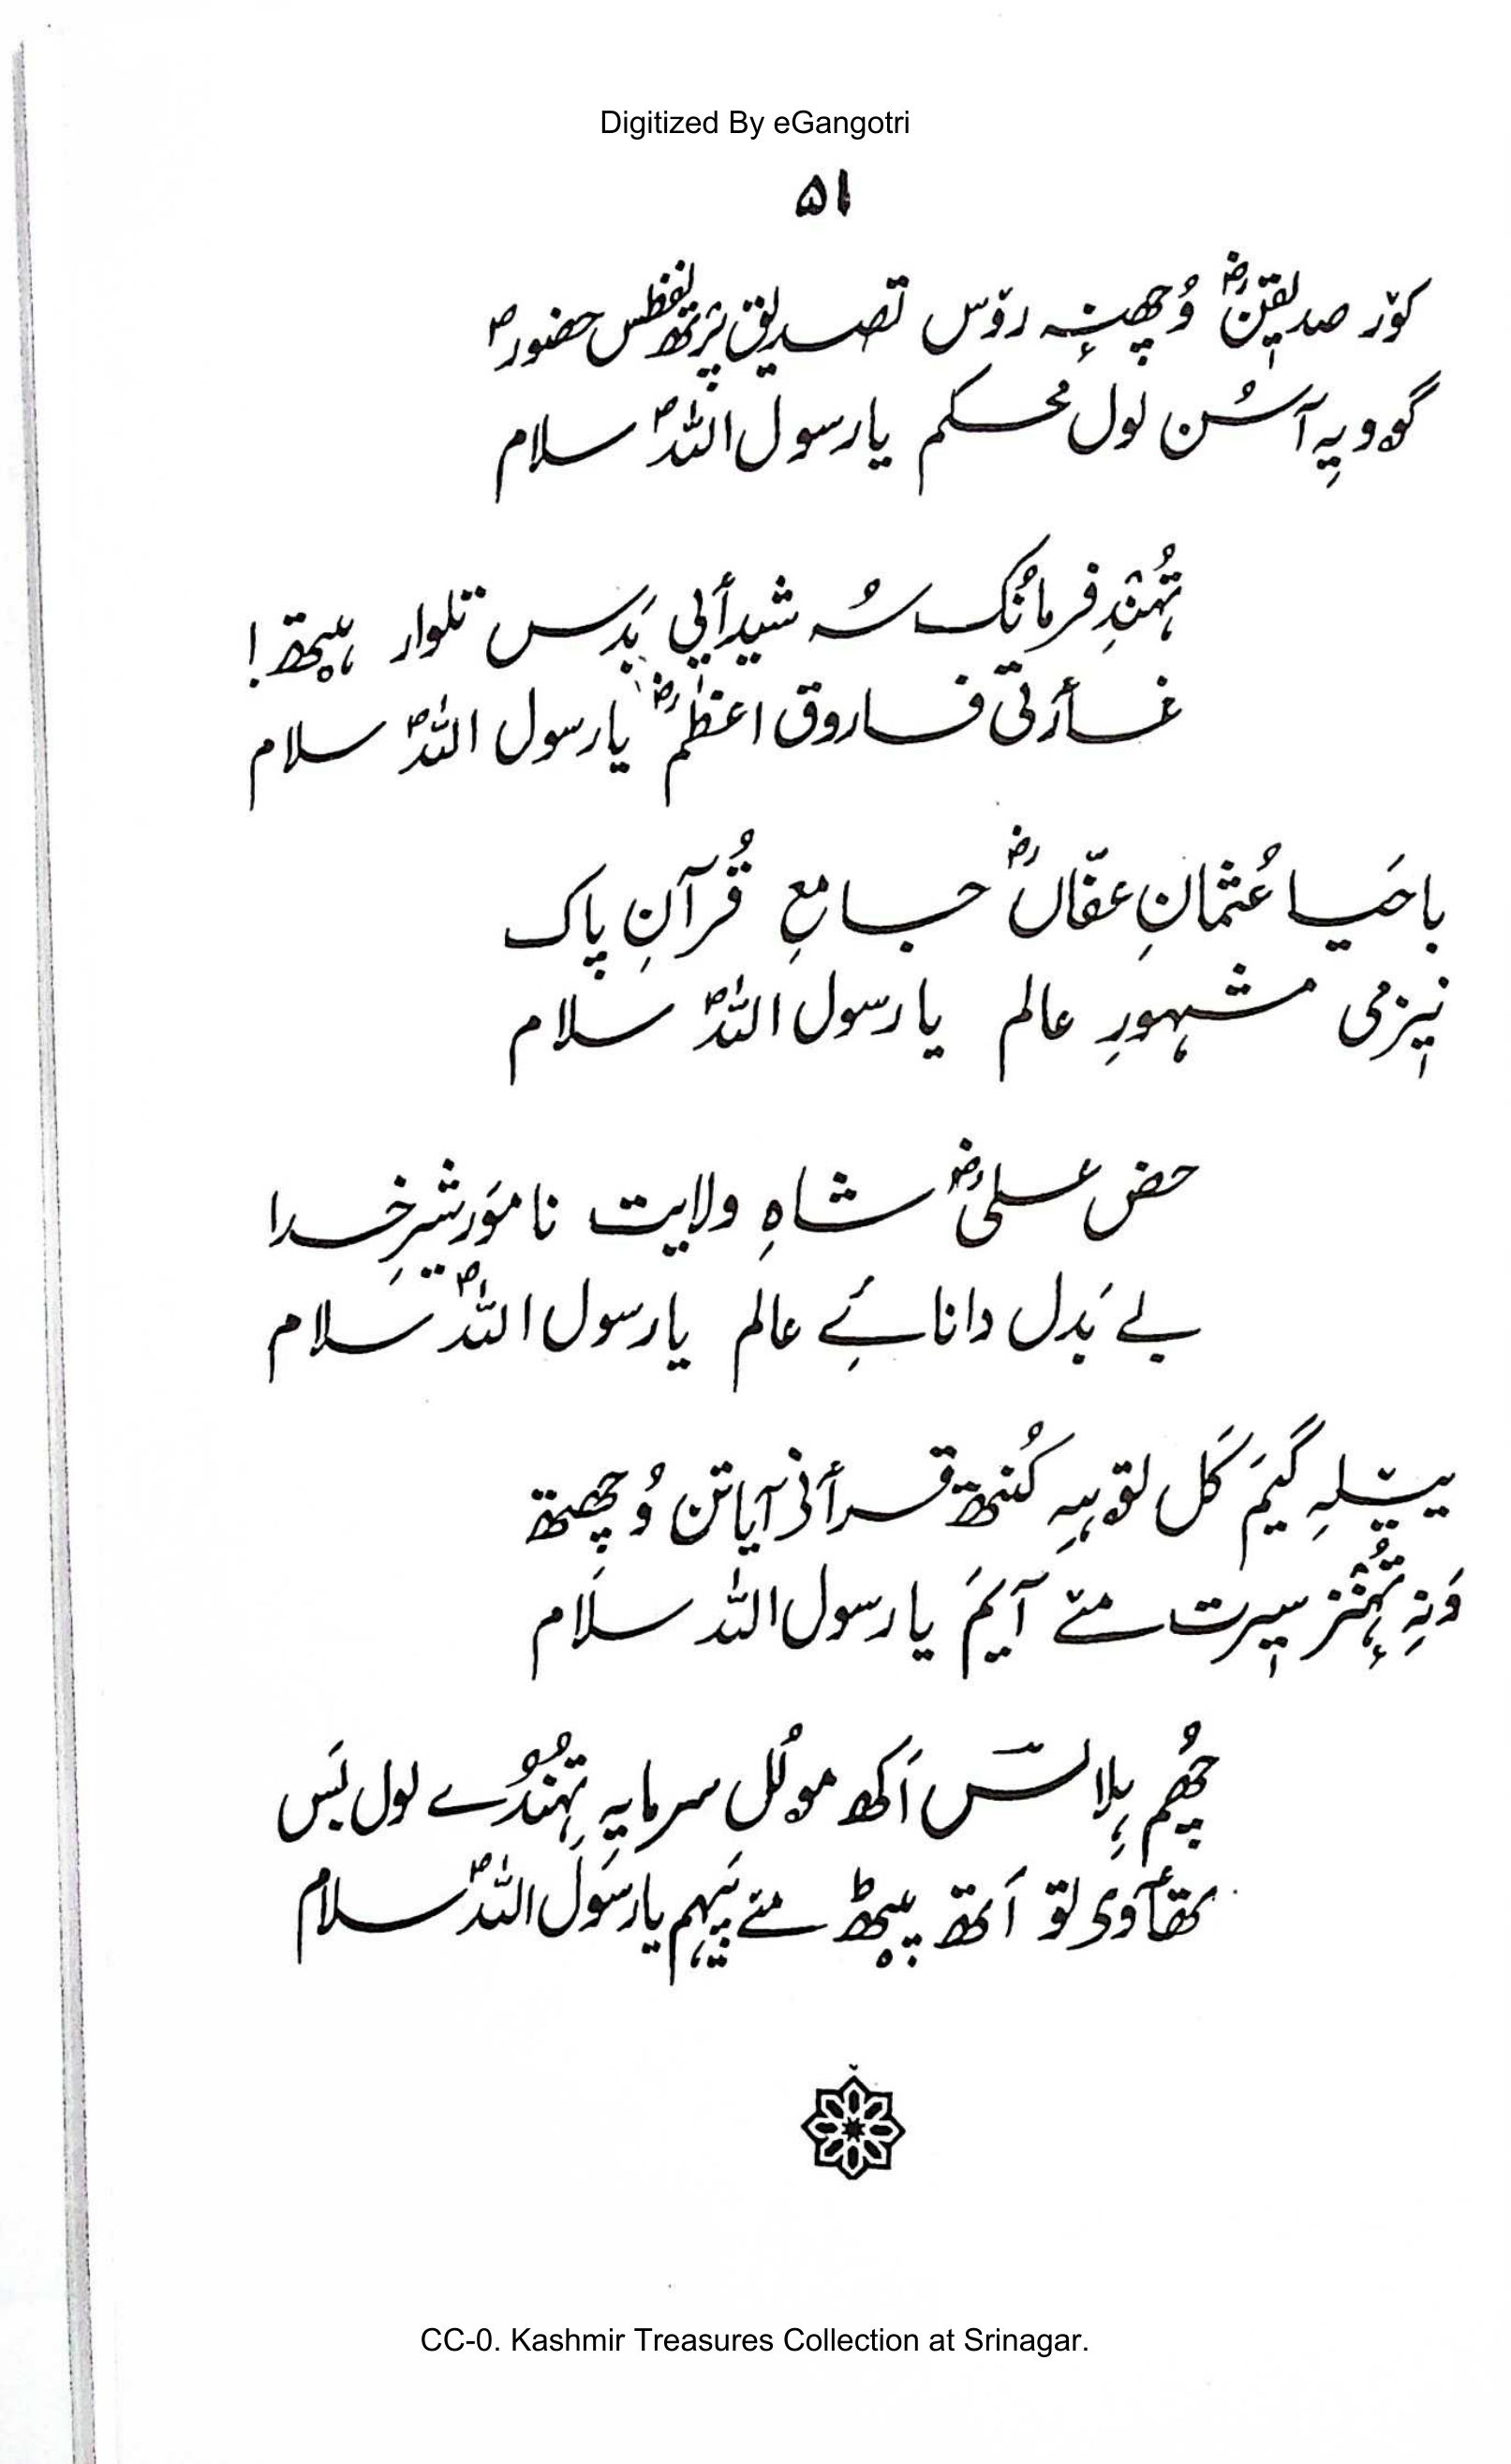 Digitized By eGangotri
۵۱
کوٚر صدیٖقنؓ وُچھنہٕ روٚس تصدیق پرٛتھ لفظس حضورؐ
گوو یہِ آسُن لول محکم یا رسول اللہؐ سلام
تُہنٛدِ فرمانُک سُہ شیدأیی بَدَس تلوار ہیٚتھ!
غأرتی فاروق اعظمؓ یا رسول اللہؐ سلام
باحَیا عُثمانِ عفّاںؓ جامعِ قُرآنِ پاک
نیٖزمی مشہورِ عالم یا رسول اللہؐ سلام
حضں علیؓ شاہِ ولایت نامَور شیرِ خدا
بے بَدَل دانائے عالم یا رسول اللہؐ سلام
ییٚلہِ گیَم کَل لوٚہہِ کُنتھ قرأنی آیاتن وُچھتھ
وَنہِ تُہنٛز سیٖرت مےٚ آیَم یا رسول اللہ سلام
چُھم ہِلالسؔ اَکھ موٗلُل سرمایہِ تُہنٛدُے لول بَس
تھأوی توٚ اَتھ پیٹھ مےٚ پَیہم یا رسول اللہؐ سلام
CC-0. Kashmir Treasures Collection at Srinagar.